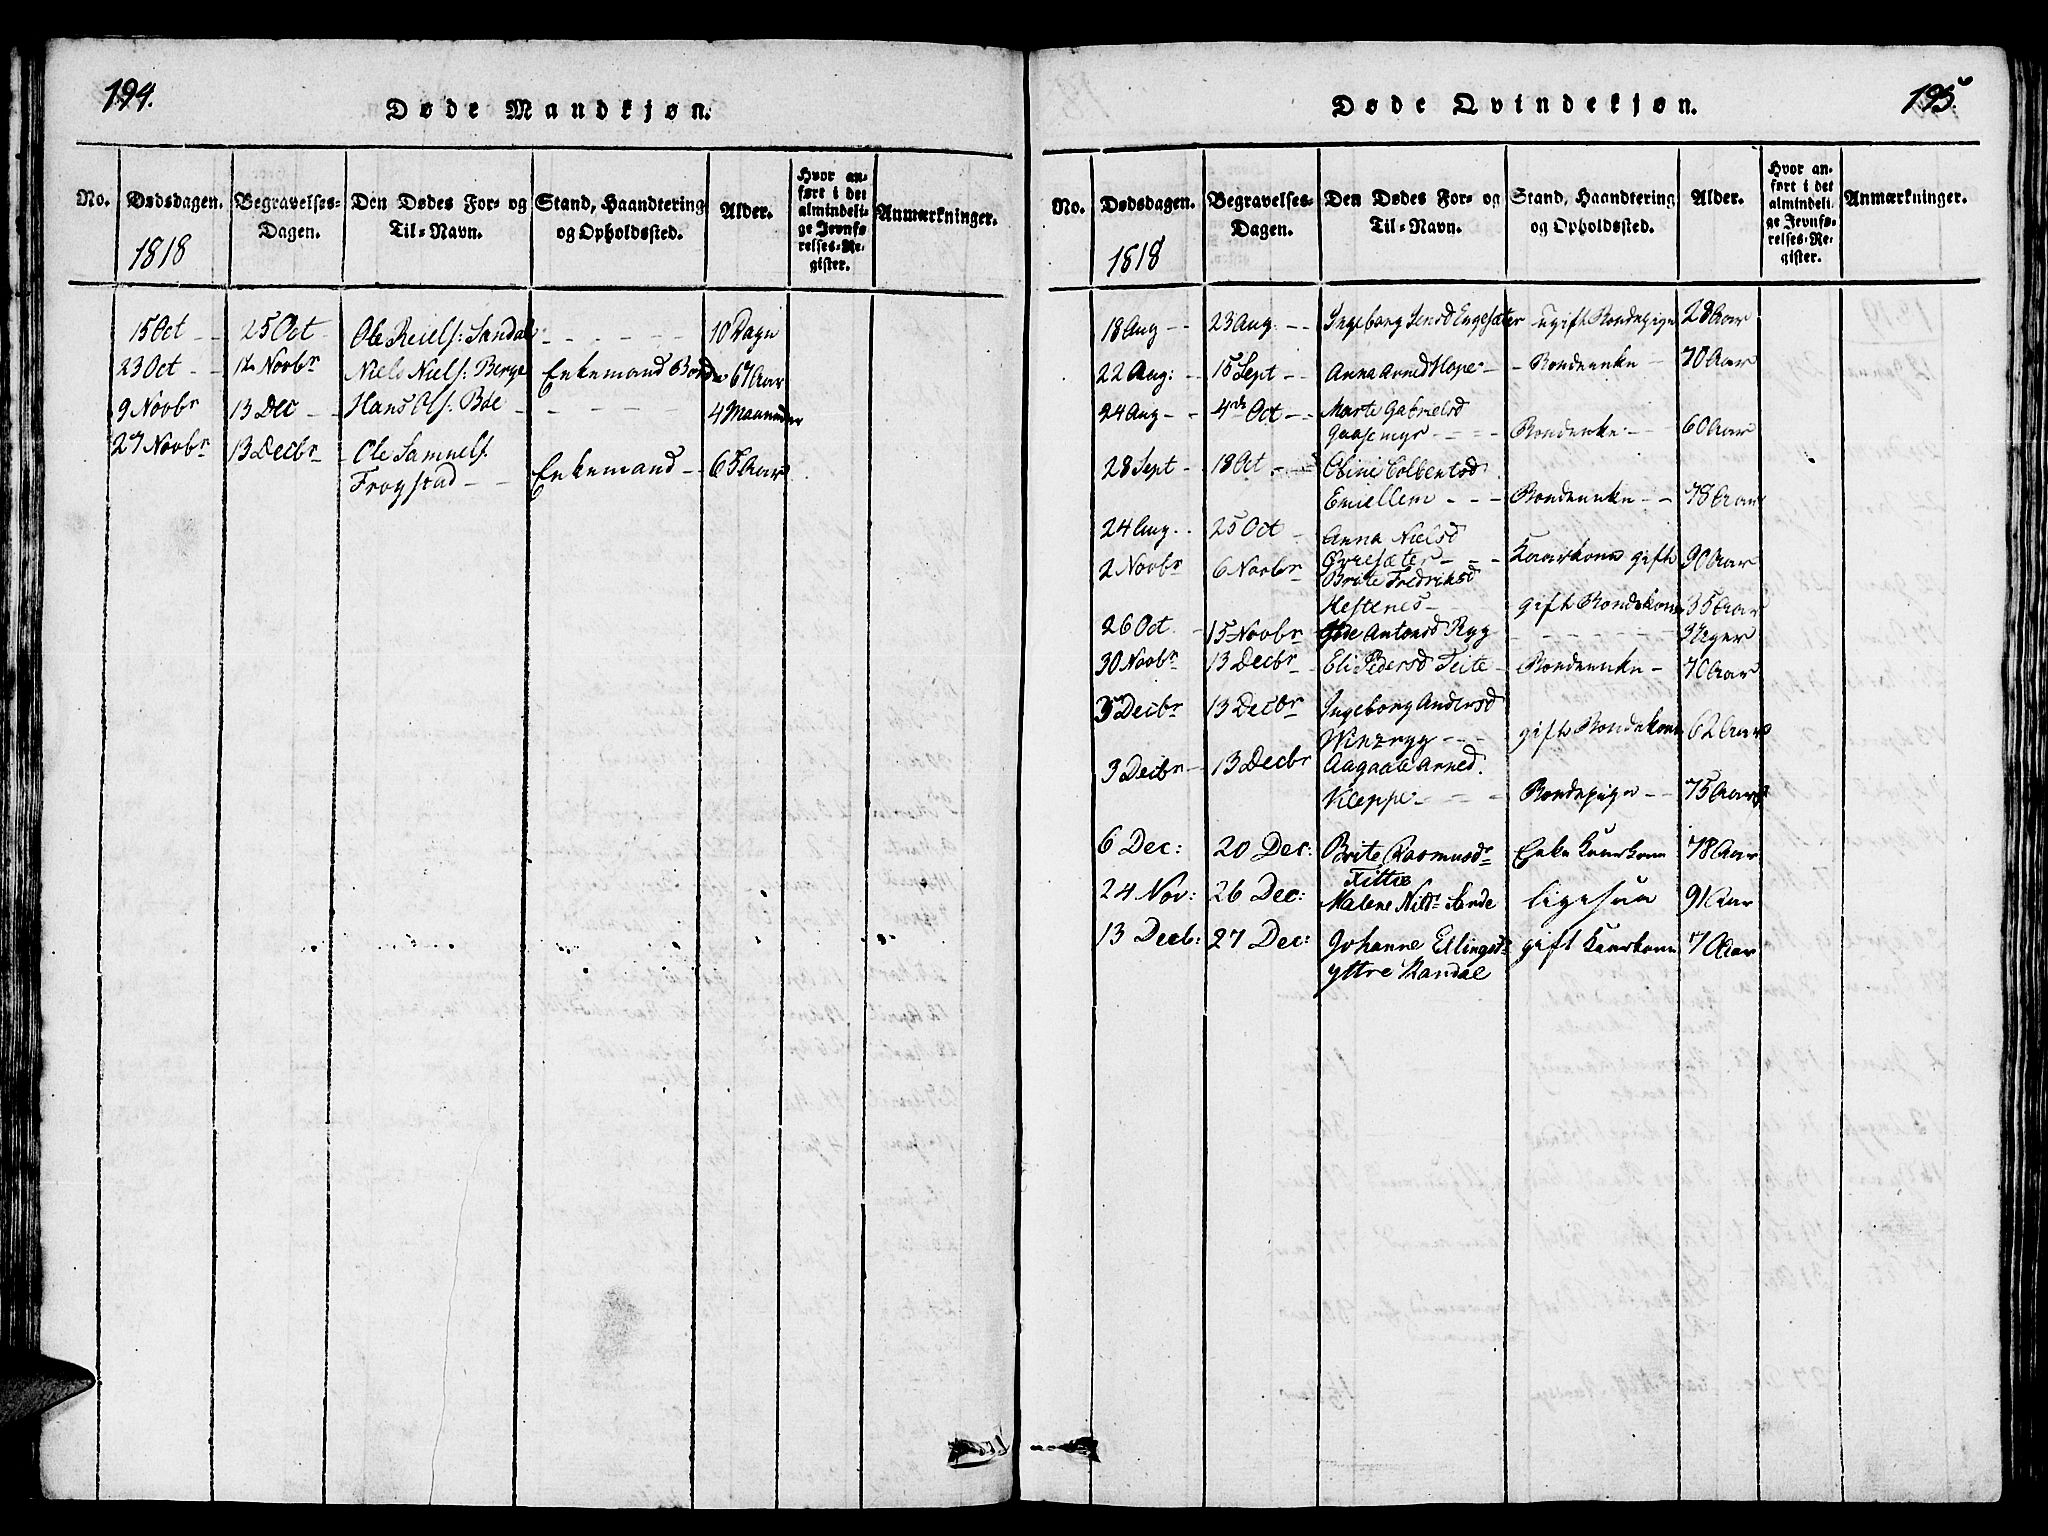 194.
Døde Mandkjøn.
No. Dødsdagen. Begravelses-Dagen. Den Dødes For- og Til-Navn. Stand, Haandtering og Opholdssted. Alder. Hvor anført i det almindelige Jevnførelses-Register. Anmærkninger.
1818
15 Oct - - 25 Oct Ole Reiels: Sandal - - - - - - 10 Dage
23 Oct - - 12 Novbr Niels Niels: Berge Enkemand Bonde 67 Aar
9 Novbr 13 Dec - - Hans Ols: Bøe - - - - - 4 Maaneder
27 Novbr 13 Decbr - Ole Samuels:
Frogstad - - Enkemand - - 65 Aar
195.
Døde Qvindekjøn.
No. Dødsdagen. Begravelses-Dagen. Den Dødes For- og Til-Navn. Stand, Haandtering og Opholdssted. Alder. Hvor anført i det almindelige Jevnførelses-Register. Anmærkninger.
1818
18 Aug - - 23 Aug: - - Ingeborg Jensd Engesæter ugift Bondepige 28 Aar
22 Aug: - 15 Sept - - Anna Arned Hope - - Bondeenke - 70 Aar
24 Aug - - 4de Oct - - Marte Gabrielsd
Gaasemyr - - - - Bondeenke - - 60 Aar
28 Sept - 18 Oct - - Oline Colbentsd
Emellem - - - Bondeenke - - 78 Aar
24 Aug - 25 Oct - Anna Nielsd
- - - Kaarkone gift 90 Aar
2 Novbr 6 Novbr Brite Fredriksd
Hestenes - gift Bondekone 35 Aar
26 Oct - 15 Novbr Antonsd Ryg - - - - - - 3 Uger
30 Novbr 13 Decbr - Eli Pedersd Teite - Bondeenke - 70 Aar
3 Decbr 13 Decbr Ingeborg Andersd
- - - gift Bondekone 62 Aar
3 Decbr - 13 Decbr Aagaate Arned.
Kleppe - - - - Bondepige - - 75 Aar
6 Dec: 20 Dec: Brite Rasmusdr
Enke Kaarkone 78 Aar
24 Nov: 26 Dec: Malene Nilsdr Sande ligesaa 91 Aar
13 Decb: 27 Dec: Johanne Ellingsdr gift Kaarkone 70 Aar
yttre Kandal